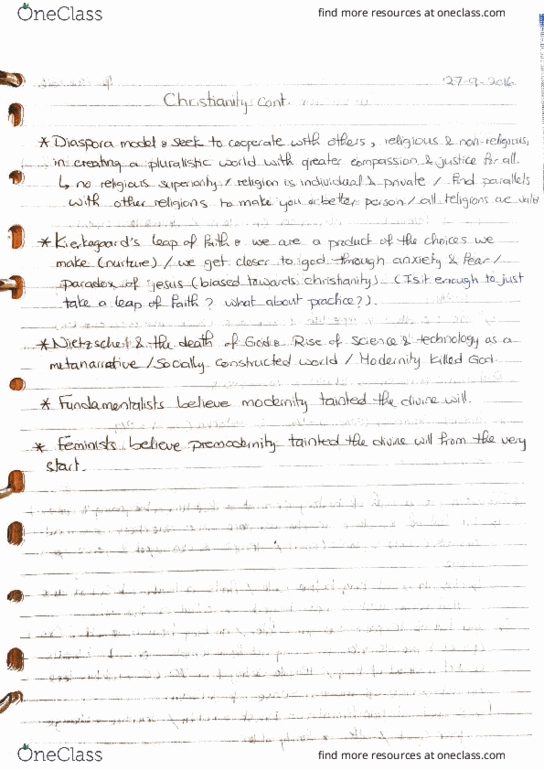 OneClass
find more resources at oneclass.com
27-9-2016
Christianity Cont.
* Diaspora model: seek to cooperate with others, religious & non-religious,
in creating a pluralistic world with greater compassion & justice for all.
↳ no religious superiority / religion is individual & private / find parallels
with other religions to make you a better person / all religions are valid
* Kierkegaard's leap of faith: we are a product of the choices we
make (nurture) / we get closer to god through anxiety & fear /
paradox of jesus (biased towards christianity) (Is it enough to just
take a leap of faith? what about practice?).
* Nietzsche & the death of God: Rise of science & technology as a
metanarrative / Socially constructed world / Modernity killed God.
* Fundamentalists believe modernity tainted the divine will.
* Feminists believe premodernity tainted the divine will from the very
start.
OneClass
find more resources at oneclass.com